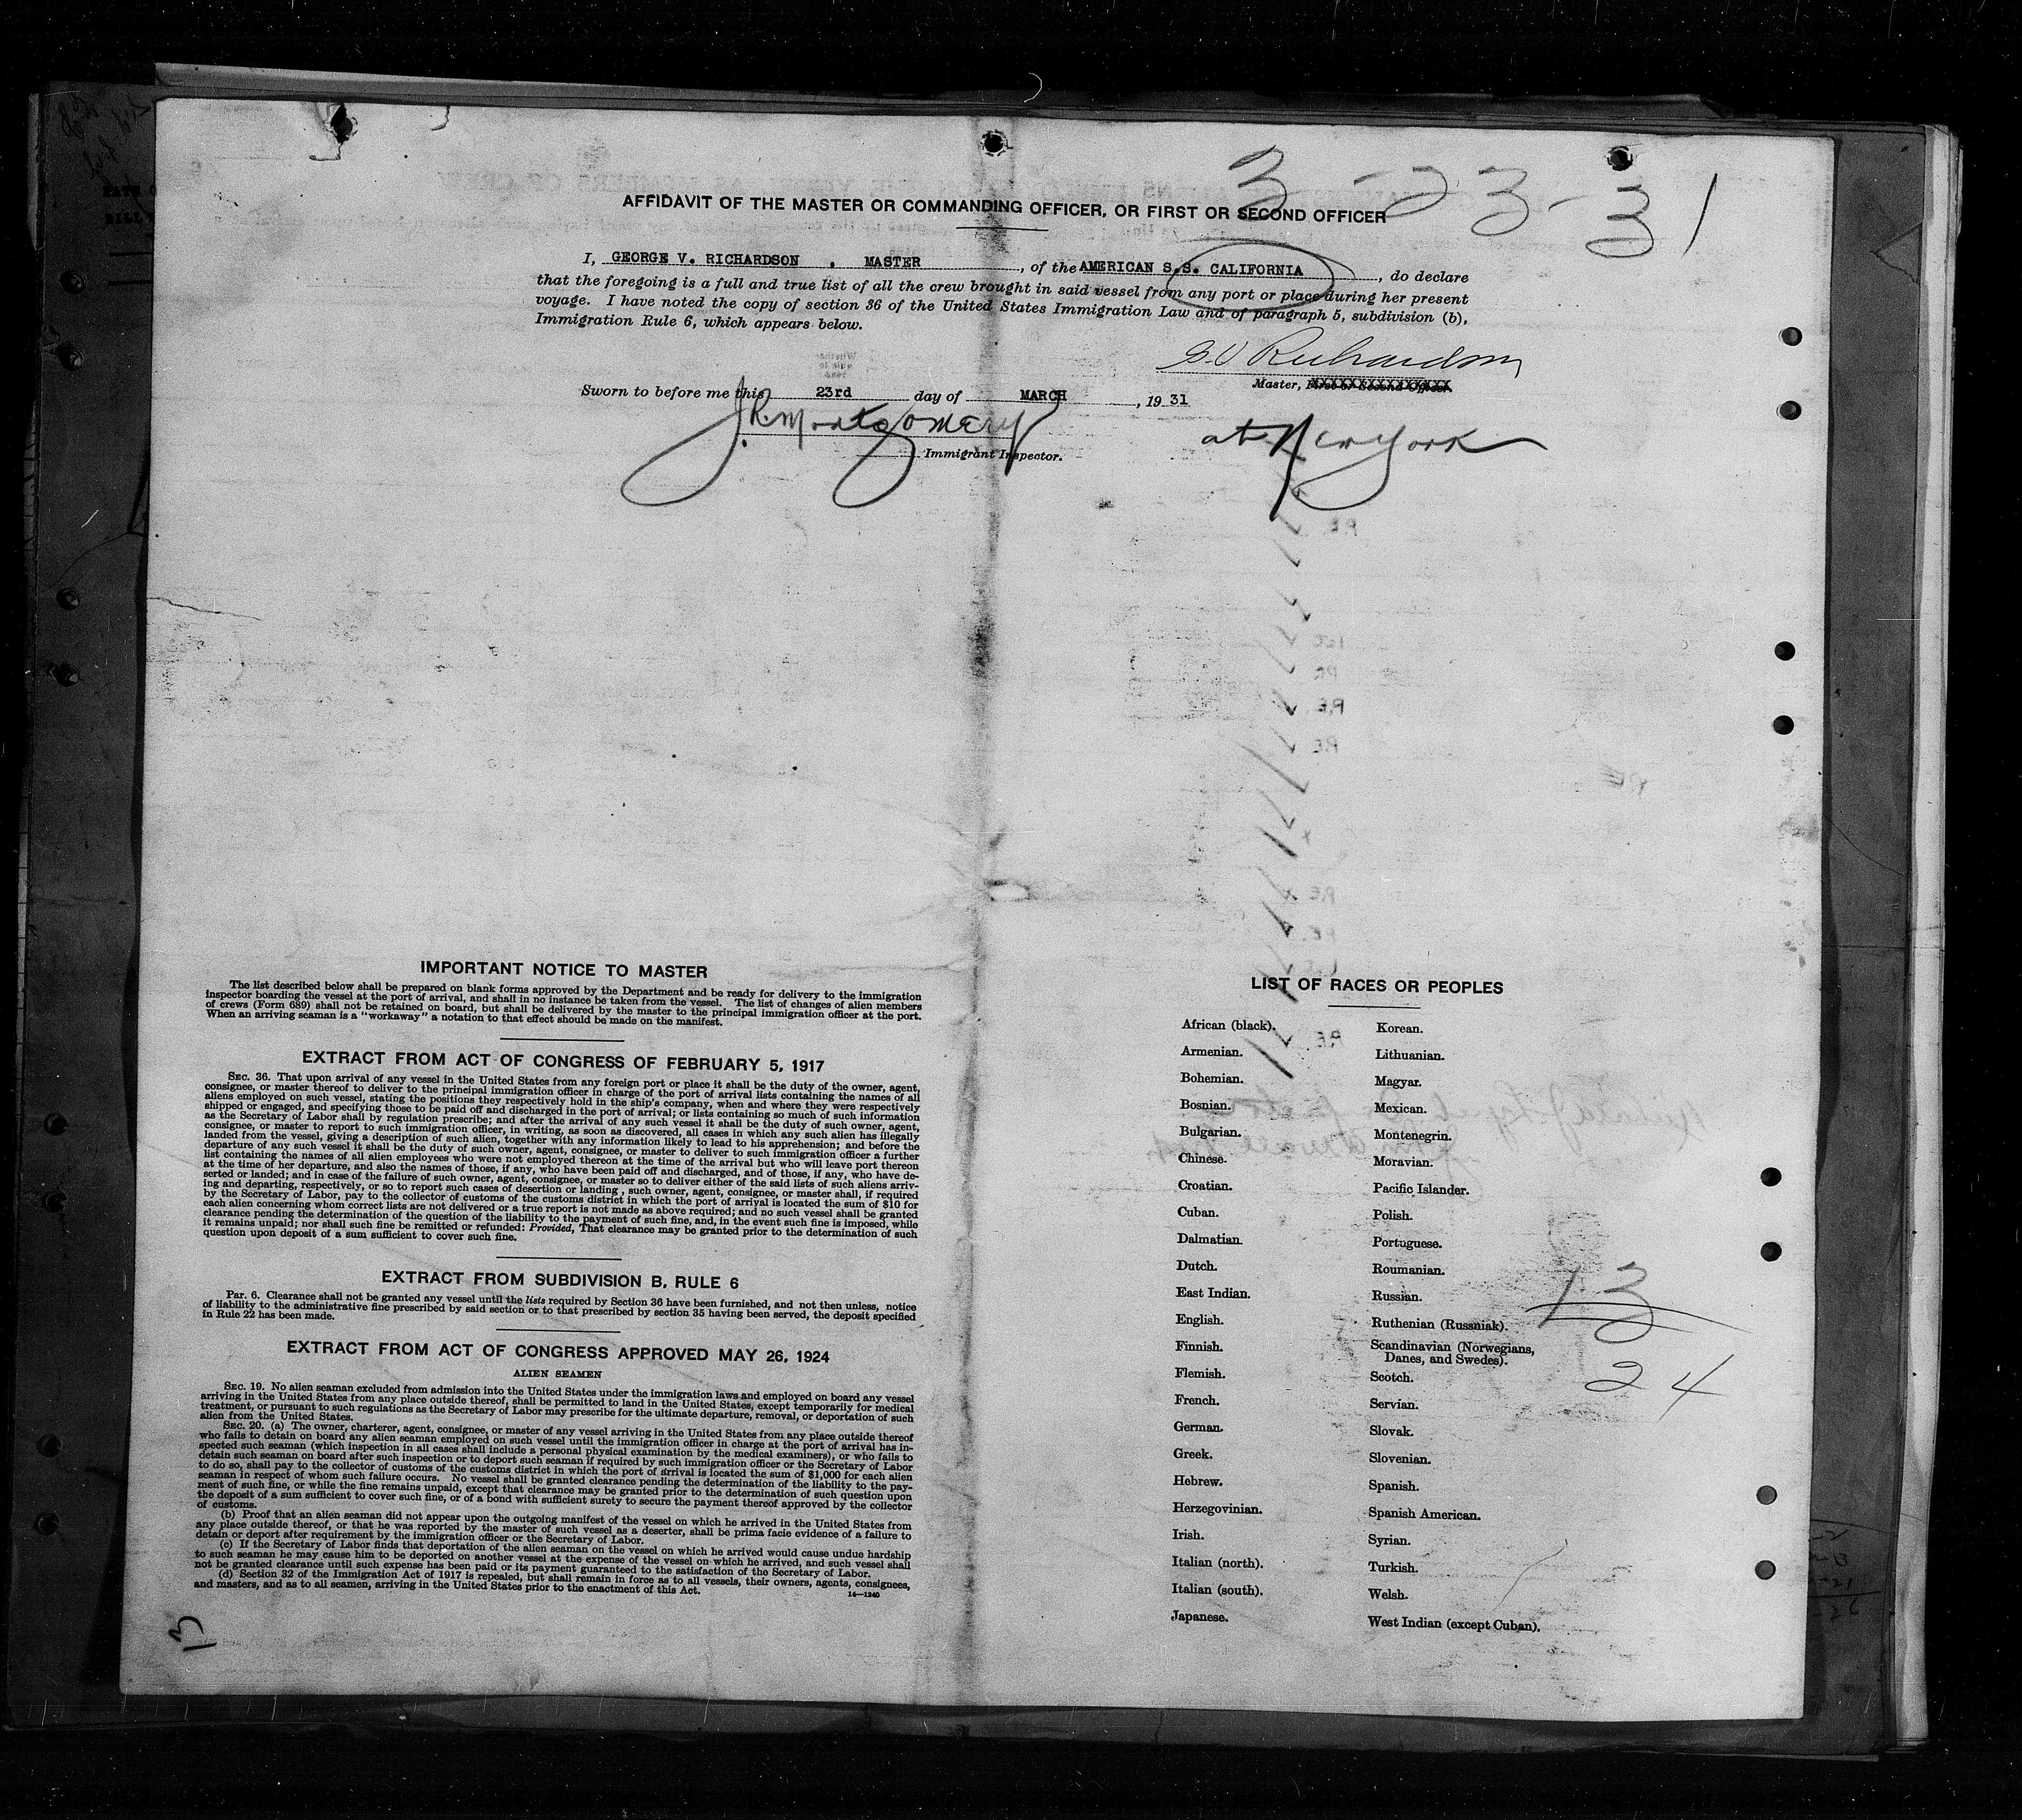 3-23-31
AFFIDAVIT OF THE MASTER OR COMMANDING OFFICER, OR FIRST OR SECOND OFFICER
I, GEORGE V. RICHARDSON , MASTER, of the AMERICAN S.S. CALIFORNIA, do declare
that the foregoing is a full and true list of all the crew brought in said vessel from any port or place during her present
voyage. I have noted the copy of section 36 of the United States Immigration Law and of paragraph 5, subdivision (b),
Immigration Rule 6, which appears below.
G.V Richardson
Master, First or Second Officer.
Sworn to before me this 23rd day of MARCH, 19 31
J.R. Montgomery
at New York
Immigrant Inspector.
IMPORTANT NOTICE TO MASTER
The list described below shall be prepared on blank forms approved by the Department and be ready for delivery to the immigration
inspector boarding the vessel at the port of arrival, and shall in no instance be taken from the vessel. The list of changes of alien members
of crews (Form 689) shall not be retained on board, but shall be delivered by the master to the principal immigration officer at the port.
When an arriving seaman is a "workaway" a notation to that effect should be made on the manifest.
EXTRACT FROM ACT OF CONGRESS OF FEBRUARY 5, 1917
SEC. 36. That upon arrival of any vessel in the United States from any foreign port or place it shall be the duty of the owner, agent,
consignee, or master thereof to deliver to the principal immigration officer in charge of the port of arrival lists containing the names of all
aliens employed on such vessel, stating the positions they respectively hold in the ship's company, when and where they were respectively
shipped or engaged, and specifying those to be paid off and discharged in the port of arrival; or lists containing so much of such information
as the Secretary of Labor shall by regulation prescribe; and after the arrival of any such vessel it shall be the duty of such owner, agent,
consignee, or master to report to such immigration officer, in writing, as soon as discovered, all cases in which any such alien has illegally
landed from the vessel, giving a description of such alien, together with any information likely to lead to his apprehension; and before the
departure of any such vessel it shall be the duty of such owner, agent, consignee, or master to deliver to such immigration officer a further
list containing the names of all alien employees who were not employed thereon at the time of the arrival but who will leave port thereon
at the time of her departure, and also the names of those, if any, who have been paid off and discharged, and of those, if any, who have de-
serted or landed; and in case of the failure of such owner, agent, consignee, or master so to deliver either of the said lists of such aliens arriv-
ing and departing, respectively, or so to report such cases of desertion or landing , such owner, agent, consignee, or master shall, if required
by the Secretary of Labor, pay to the collector of customs of the customs district in which the port of arrival is located the sum of $10 for
each alien concerning whom correct lists are not delivered or a true report is not made as above required; and no such vessel shall be granted
clearance pending the determination of the question of the liability to the payment of such fine, and, in the event such fine is imposed, while
it remains unpaid; nor shall such fine be remitted or refunded: Provided, That clearance may be granted prior to the determination of such
question upon deposit of a sum sufficient to cover such fine.
EXTRACT FROM SUBDIVISION B, RULE 6
Par. 6. Clearance shall not be granted any vessel until the lists required by Section 36 have been furnished, and not then unless, notice
of liability to the administrative fine prescribed by said section or to that prescribed by section 35 having been served, the deposit specified
in Rule 22 has been made.
EXTRACT FROM ACT OF CONGRESS APPROVED MAY 26, 1924
ALIEN SEAMEN
SEC. 19. No alien seaman excluded from admission into the United States under the immigration laws and employed on board any vessel
arriving in the United States from any place outside thereof, shall be permitted to land in the United States, except temporarily for medical
treatment, or pursuant to such regulations as the Secretary of Labor may prescribe for the ultimate departure, removal, or deportation of such
alien from the United States.
SEC. 20. (a) The owner, charterer, agent, consignee, or master of any vessel arriving in the United States from any place outside thereof
who fails to detain on board any alien seaman employed on such vessel until the immigration officer in charge at the port of arrival has in-
spected such seaman (which inspection in all cases shall include a personal physical examination by the medical examiners), or who fails to
detain such seaman on board after such inspection or to deport such seaman if required by such immigration officer or the Secretary of Labor
to do so, shall pay to the collector of customs of the customs district in which the port of arrival is located the sum of $1,000 for each alien
seaman in respect of whom such failure occurs. No vessel shall be granted clearance pending the determination of the liability to the pay-
ment of such fine, or while the fine remains unpaid, except that clearance may be granted prior to the determination of such question upon
the deposit of a sum sufficient to cover such fine, or of a bond with sufficient surety to secure the payment thereof approved by the collector
of customs.
(b) Proof that an alien seaman did not appear upon the outgoing manifest of the vessel on which he arrived in the United States from
any place outside thereof, or that he was reported by the master of such vessel as a deserter, shall be prima facie evidence of a failure to
detain or deport after requirement by the immigration officer or the Secretary of Labor.
(c) If the Secretary of Labor finds that deportation of the alien seaman on the vessel on which he arrived would cause undue hardship
to such seaman he may cause him to be deported on another vessel at the expense of the vessel on which he arrived, and such vessel shall
not be granted clearance until such expense has been paid or its payment guaranteed to the satisfaction of the Secretary of Labor.
(d) Section 32 of the Immigration Act of 1917 is repealed, but shall remain in force as to all vessels, their owners, agents, consignees,
and masters, and as to all seamen, arriving in the United States prior to the enactment of this Act.
14—1240
13
LIST OF RACES OR PEOPLES
African (black).
Armenian.
Bohemian.
Bosnian.
Bulgarian.
Chinese.
Croatian.
Cuban.
Dalmatian.
Dutch.
East Indian.
English.
Finnish.
Flemish.
French.
German.
Greek.
Hebrew.
Herzegovinian.
Irish.
Italian (north).
Italian (south).
Japanese.
Korean.
Lithuanian.
Magyar.
Mexican.
Montenegrin.
Moravian.
Pacific Islander.
Polish.
Portuguese.
Roumanian.
Russian.
Ruthenian (Russniak).
Scandinavian (Norwegians,
Danes, and Swedes).
Scotch.
Servian.
Slovak.
Slovenian.
Spanish.
Spanish American.
Syrian.
Turkish.
Welsh.
West Indian (except Cuban).
13
24